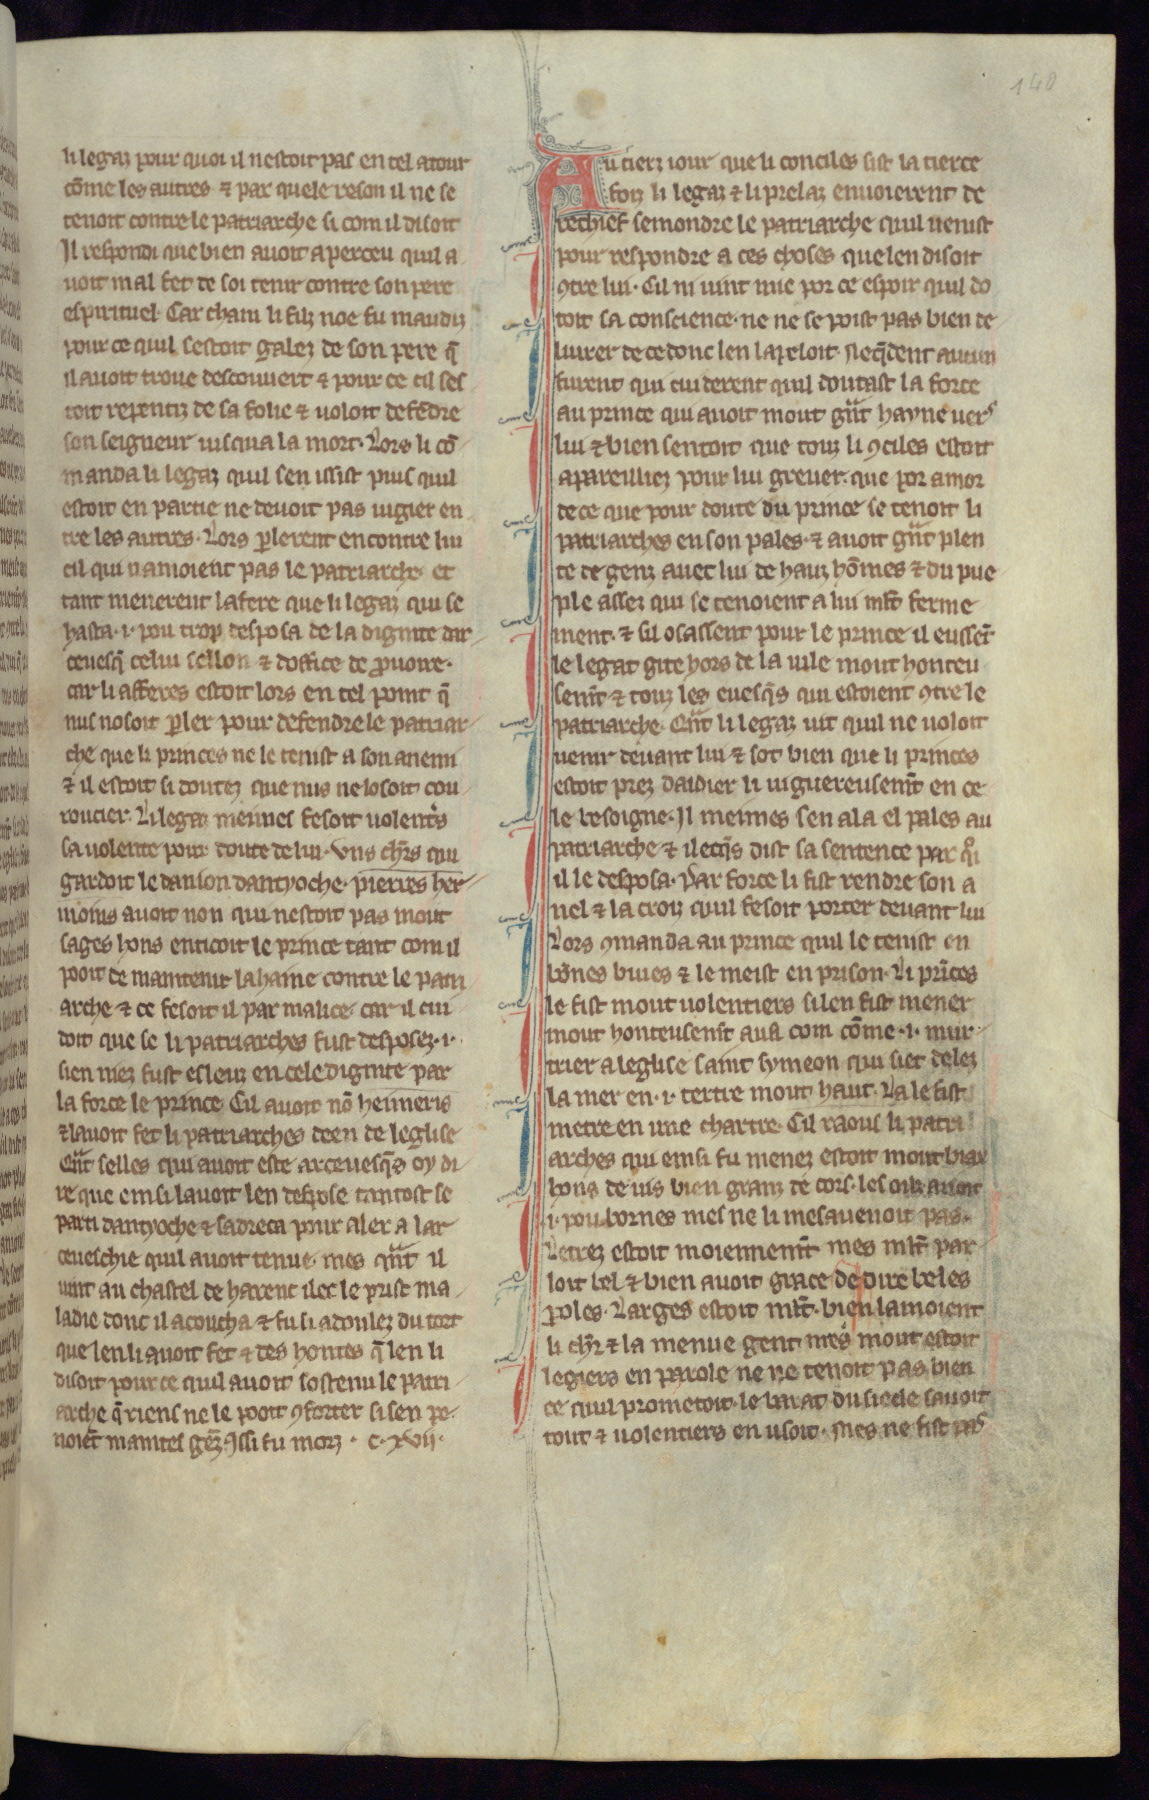 140
li legaz pour quoi il nestoit pas en tel atour
cōme les autres ⁊ par quele reson il ne se
tenoit contre le patriarche si com il disoit
Il respondi que bien auoit aperceu quil a
uoit mal fet de soi tenir contre son pere
espirituel. Car cham li filz noe fu maudiz
pour ce quil sestoit galez de son pere q̄
il auoit troue descouuert ⁊ pour ce cil ses
toit repentiz de sa folie ⁊ uoloit defēdre
son seigneur iusqua la mort. Lors li cō
manda li legaz quil sen issist puis quil
estoit en partie ne deuoit pas iugier en
tre les autres. Lors ꝑlerent encontre lui
cil qui namoient pas le patriarche et
tant menerent lafere que li legaz qui se
hasta .i. pou trop desposa de la dignite dar
ceuesq̄ celui sellon ⁊ doffice de ꝓuoire.
car li afferes estoit lors en tel point q̄
nus nosoit ꝑler pour defendre le patriar
che que li princes ne le tenist a son anemi
⁊ il estoit si doutez que nus ne losoit cou
roucier. Li legaz meimes fesoit uolentˢs
sa uolente pour doute de lui. Vns chr̄s qui
gardoit le danion dantyoche. pierres her
moins auoit non qui nestoit pas mout
sages hons enticoit le prince tant com il
pooit de maintenir la haine contre le patri
arche ⁊ ce fesoit il par malice. car il cui
doit que se li patriarches fust desposez .i.
sien niez fust esleuz en cele dignite par
la force le prince. Cil auoit nō heimeris
⁊ lauoit fet li patriarches deen de leglise
Qn̄t selles qui auoit este arceuesq̄s oy di
re que einsi lauoit len despose tantost se
parti dantyoche ⁊ sadreca pour aler a lar
ceueschie quil auoit tenue. mes qn̄t il
uint au chastel de harenc ilec le prist ma
ladie donc il acoucha ⁊ fu si adoulez du tort
que len li auoit fet ⁊ des hontes q̄ len li
disoit pour ce quil auoit sostenu le patri
arche q̄ riens ne le pooit ꝯforter si sen pe
noiēt maintes gēz. Issi fu morz . c. xvii.
Au tierz iour que li conciles sist la tierce
foiz li legaz ⁊ li prelaz enuoierent de
rechief semondre le patriarche quil uenist
pour respondre a ces choses que len disoit
ꝯtre lui. Cil ni uint mie por ce espoir quil do
toit sa conscience. ne ne se poist pas bien de
liurer de ce donc len lapeloit. Neq̄dent aucun
furent qui cuiderent quil doutast la force
au prince qui auoit mout gn̄t hayne uerˢ
lui ⁊ bien sentoit que touz li ꝯciles estoit
apareilliez pour lui greuer. que por amor
de ce que pour doute du prince se tenoit li
patriarches en son pales. ⁊ auoit gn̄t plen
te de genz auec lui de hauz hōmes ⁊ du pue
ple assez qui se tenoient a lui ml̄t ferme
ment. ⁊ sil osassent pour le prince il eussēt
le legat gite hors de la uile mout honteu
sem̄t ⁊ touz les euesq̄s qui estoient ꝯtre le
patriarche. Qn̄t li legaz uit quil ne uoloit
uenir deuant lui ⁊ sot bien que li princes
estoit prez daidier li uiguereusem̄t en ce
le besoigne. Il meimes sen ala el pales au
patriarche ⁊ ilecq̄s dist sa sentence par qͥi
il le desposa. Par force li fist rendre son a
nel ⁊ la croiz quil fesoit porter deuant lui
Lors ꝯmanda au prince quil le tenist en
bōnes buies ⁊ le meist en prison. Li pr̄ces
le fist mout uolentiers si len fist mener
mout honteusem̄t aua com cōme .i. mur
trier a leglise saint symeon qui siet delez
la mer en .i. tertre mout haut. La le fist
metre en une chartre. Cil raous li patri
arches qui einsi fu menez estoit mout biax
hons de uis bien granz de cors. les oilz auoit
.i. pou bornes mes ne li mesauenoit pas.
Letrez estoit moiennem̄t mes ml̄t par
loit bel ⁊ bien auoit grace de dire beles
ꝑoles. Larges estoit ml̄t. bien lamoient
li chr̄ ⁊ la menue gent mes mout estoit
legiers en parole ne ne tenoit pas bien
ce quil prometoit. le barat du siecle sauoit
tout ⁊ uolentiers en usoit. Mes ne fist pas